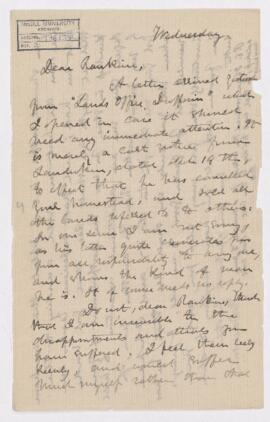 McGILL UNIVERSITY
ARCHIVES
Wednesday
Dear Rankine,
A letter arrived
from "Lands Office, " which
I opened in case it should
need any immediate attention. It
is merely a curt notice from
dated the
to effect that he has cancelled
your homestead, and sold all
the lands referred to to others.
In one sense I am not sorry,
as his letter quite
you from all responsibility to any one,
and shows the kind of man
he is. It of course needs no reply.
Do not, dear Rankine, think
that I am insensible to the
disappointments and trials you
have suffered. I feel them very
keenly, and would suffer
much myself rather than that